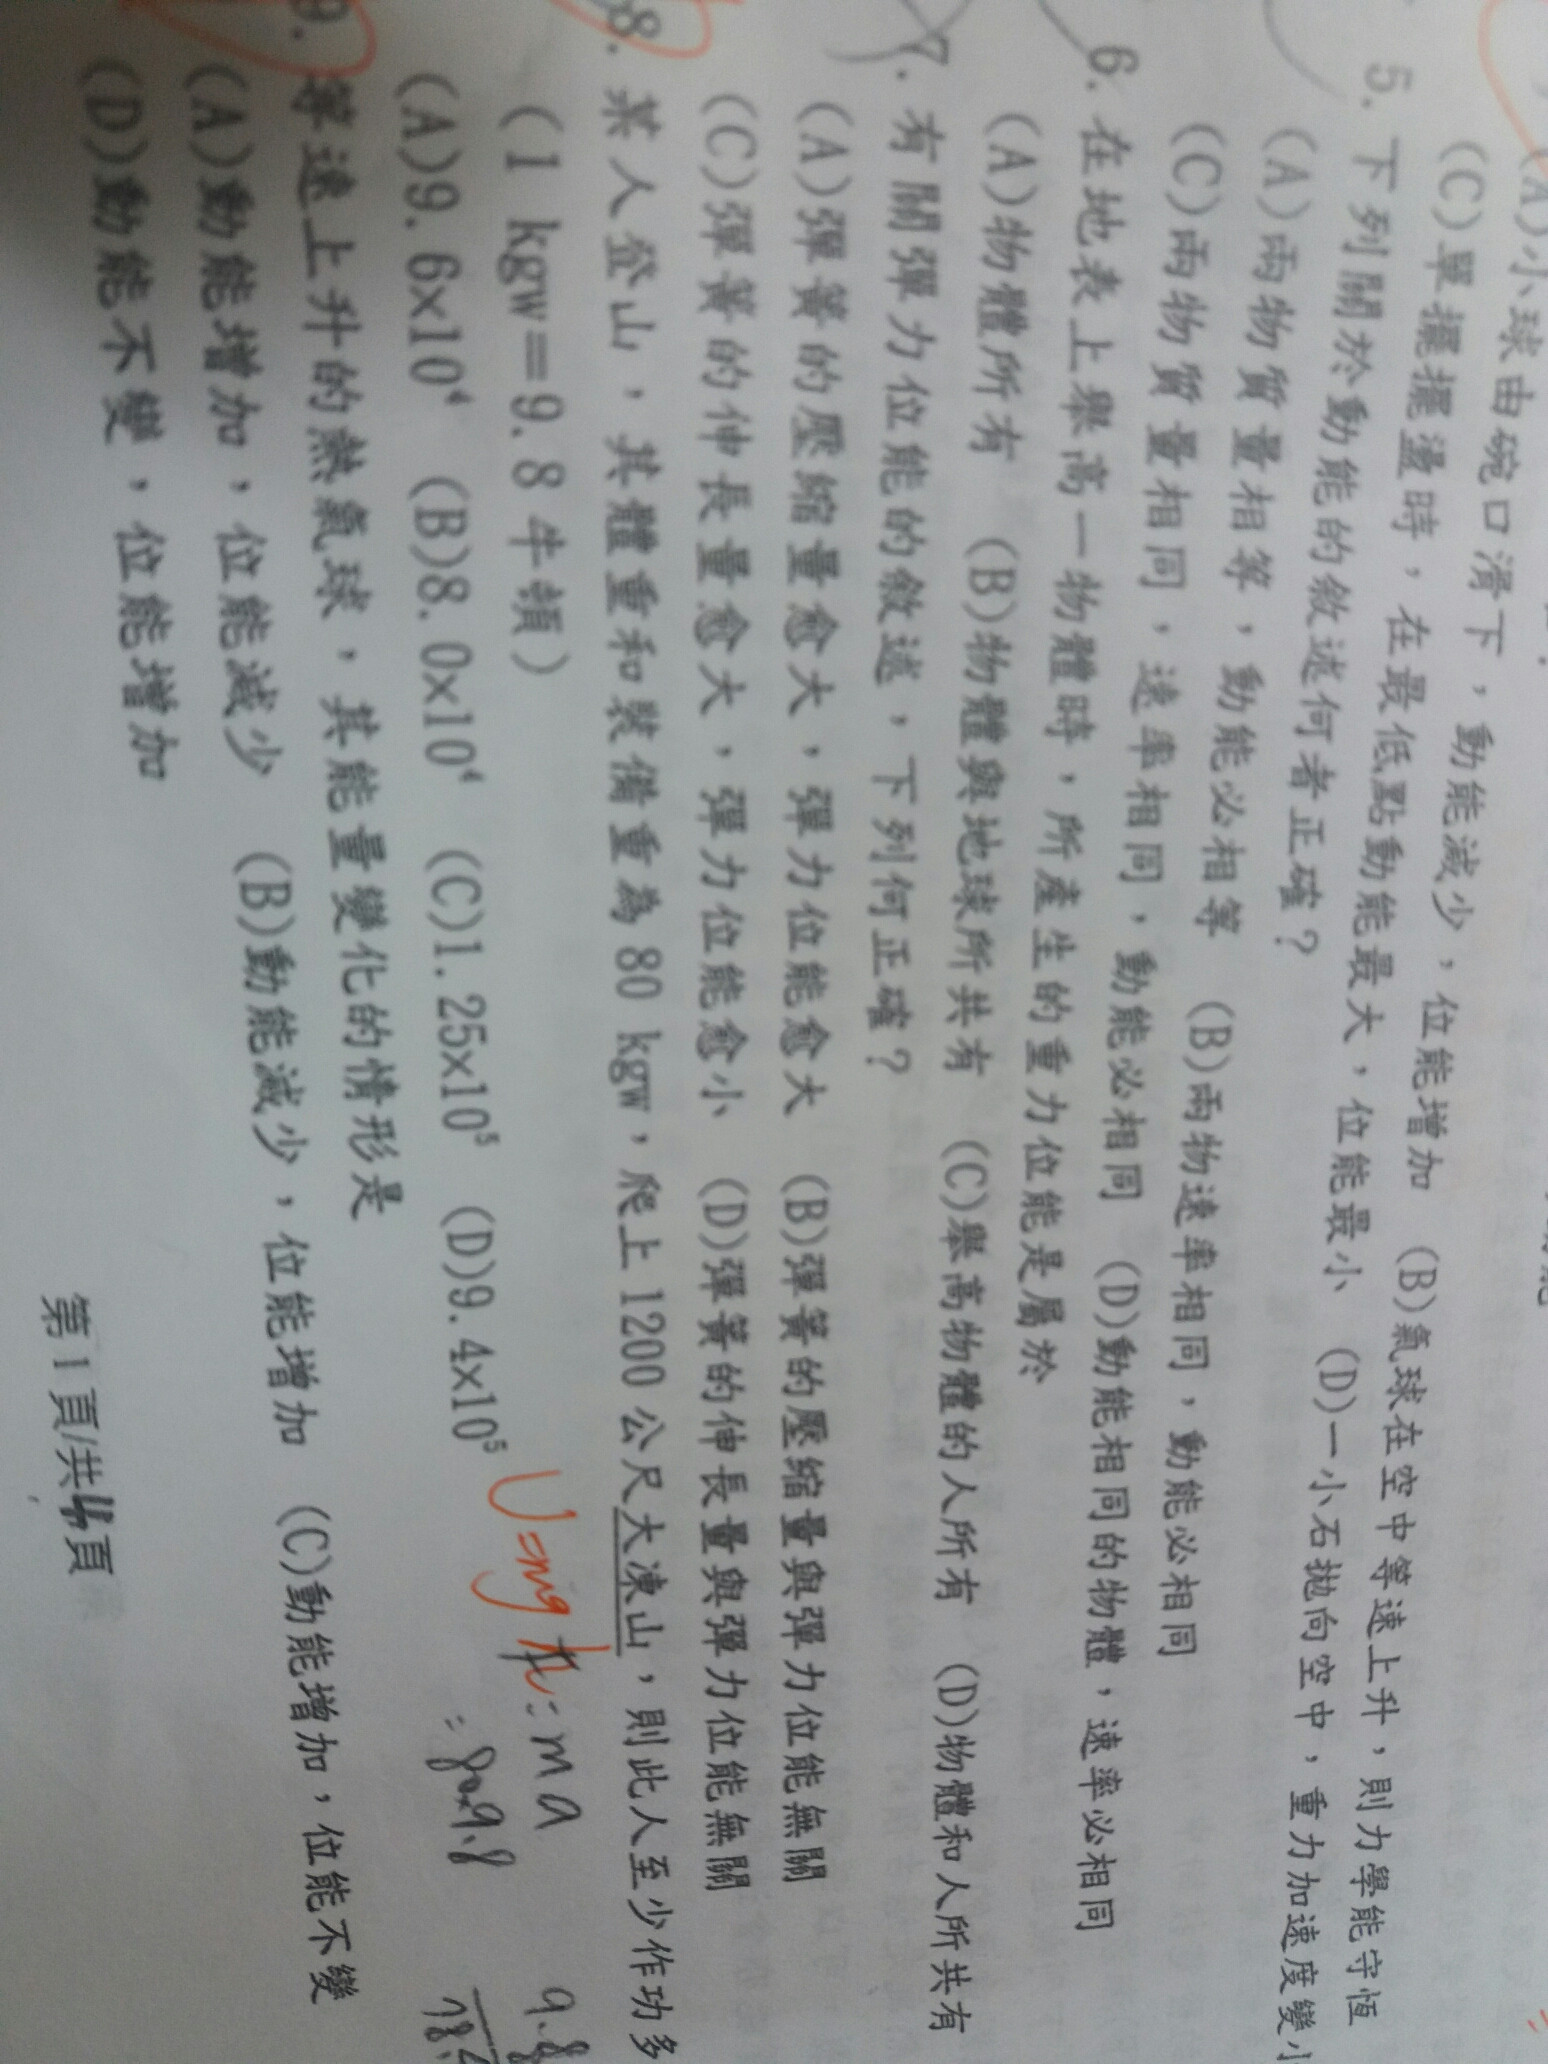 (A)小球由碗口滑下，動能減少，位能增加 (B)氣球在空中等速上升，則力學能守恆
(C)單擺擺盪時，在最低點動能最大，位能最小 (D)一小石拋向空中，重力加速度變小
5. 下列關於動能的敘述何者正確？
(A)兩物質量相等，動能必相等 (B)兩物速率相同，動能必相同
(C)兩物質量相同，速率相同，動能必相同 (D)動能相同的物體，速率必相同
6. 在地表上舉高一物體時，所產生的重力位能是屬於
(A)物體所有 (B)物體與地球所共有 (C)舉高物體的人所有 (D)物體和人所共有
7. 有關彈力位能的敘述，下列何正確？
(A)彈簧的壓縮量愈大，彈力位能愈大 (B)彈簧的壓縮量與彈力位能無關
(C)彈簧的伸長量愈大，彈力位能愈小 (D)彈簧的伸長量與彈力位能無關
8. 某人登山，其體重和裝備重為 80 kgw，爬上 1200 公尺大凍山，則此人至少作功多
(1 kgw=9.8 牛頓)
(A)9.6x10⁴ (B)8.0x10⁴ (C)1.25x10⁵ (D)9.4x10⁵
U=mgh = ma
= 80×9.8
9. 等速上升的熱氣球，其能量變化的情形是
(A)動能增加，位能減少 (B)動能減少，位能增加 (C)動能增加，位能不變
(D)動能不變，位能增加
第 1 頁/共4頁